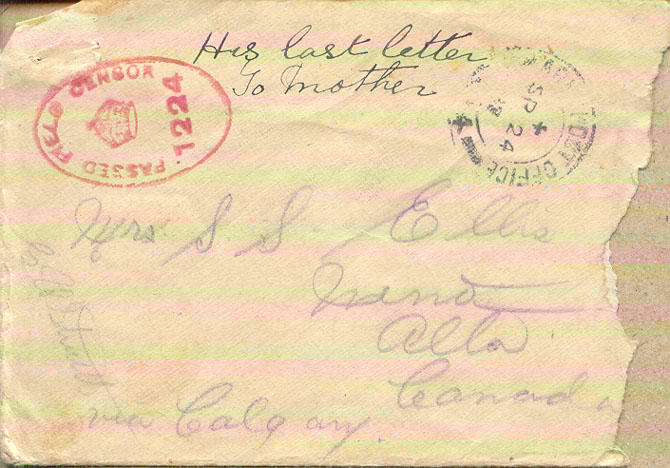 His last letter
To Mother
PASSED FIELD CENSOR
1224
POST OFFICE
SP
24
Mrs S S Ellis
Alta
Canada
via Calgary.